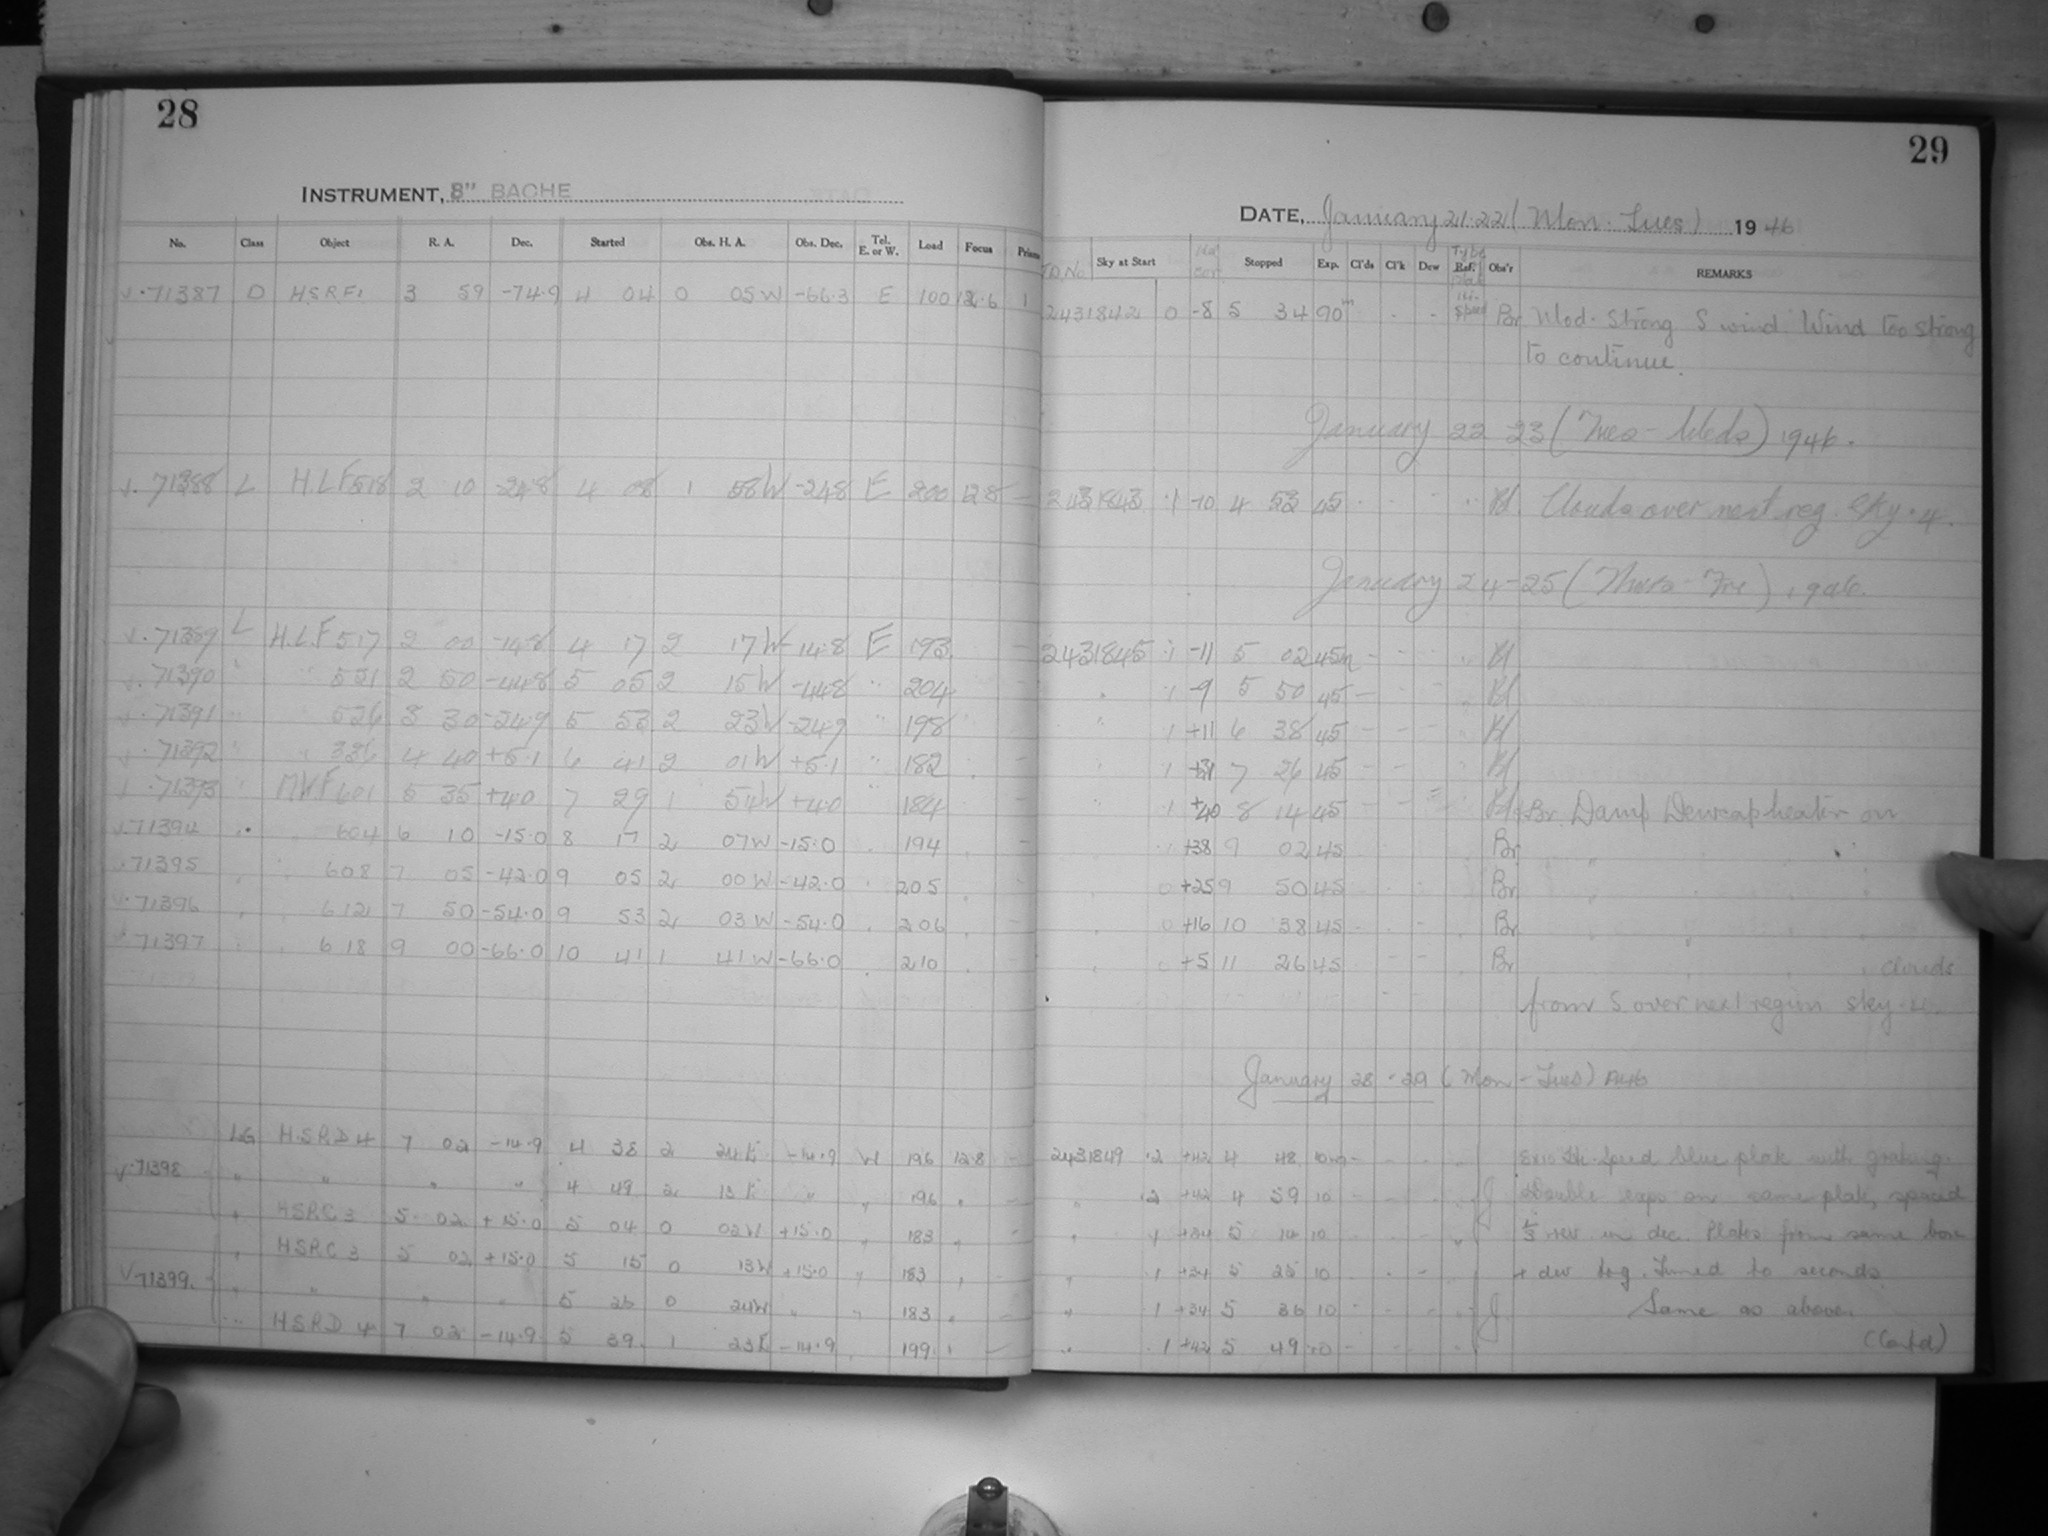 28
INSTRUMENT, 8" BACHE
No. Class Object R. A. Dec. Started Obs. H. A. Obs. Dec. Tel. E. or W. Load Focus Prism
71387 D HSRF1 3 59 -74.9 4 04 0 05W -66.3 E 100 12.6 1
71388 L H.L.F 518 2 10 -24.8 4 08 1 58W -24.8 E 200 12.8 -
71389 L H.L.F 517 2 00 -14.8 4 17 2 17W -14.8 E 193 -
71390 " " 551 2 50 -44.8 5 05 2 15W -44.8 " 204
71391 " 526 3 30 -24.9 5 53 2 23W -24.9 " 198
71392 " 336 4 40 +5.1 6 41 2 01W +5.1 " 182 -
71393 MWF 601 5 35 +4.0 7 29 1 54W +4.0 " 184
71394 604 6 10 -15.0 8 17 2 07W -15.0 194 -
71395 608 7 05 -42.0 9 05 2 00W -42.0 205
71396 612 7 50 -54.0 9 53 2 03W -54.0 206 -
71397 618 9 00 -66.0 10 41 1 41W -66.0 210 -
LG HSRD4 7 02 -14.9 4 38 2 24E -14.9 W 196 12.8 -
71398 " " " " 4 49 2 13E " " 196 " -
" HSRC3 5 02 +15.0 5 04 0 02W +15.0 " 183 " -
" HSRC3 5 02 +15.0 5 15 0 13W +15.0 " 183 "
71399. " " " " 5 26 0 24W " " 183 " -
" HSRD4 7 02 -14.9 5 39 1 23E -14.9 " 199 " -
29
DATE, January 21.22 (Mon. Tues) 1946
J.D. No Sky at Start Stopped Exp. Cl'ds Cl'k Dew Type Ref. Obs'r REMARKS
2431842 0 -8 5 34 90m - - Hi. Speed Br Mod. Strong S wind. Wind too strong
to continue.
January 22-23 (Tues-Weds) 1946.
2431843 .1 -10 4 53 45 Bl Clouds over next reg. Sky.4.
January 24-25 (Thurs-Fri) 1946.
2431845 .1 -11 5 02 45m - Bl
" .1 -9 5 50 45 - Bl
" 1 +11 6 38 45 - - - Bl
1 +31 7 26 45 - - Bl
" 1 +40 8 14 45 - - = Bl & Br Damp Dewcap heater on
.1 +38 9 02 45 Br " " "
0 +25 9 50 45 Br
0 +16 10 38 45 - Br " " "
0 +5 11 26 45 - - Br " " " clouds
from S over next region sky.4.
January 28-29 (Mon-Tues) 1946
2431849 .2 +42 4 48 10m - 8x10 Hi. Speed blue plate with grating.
" .2 +42 4 59 10 - J Double exps on same plate, spaced
" 1 +34 5 14 10 rev in dec. Plates from same box
" .1 +34 5 25 10 + dev tog. Timed to seconds.
" 1 +34 5 36 10 - - J. Same as above.
" .1 +42 5 49 10 - (Contd)